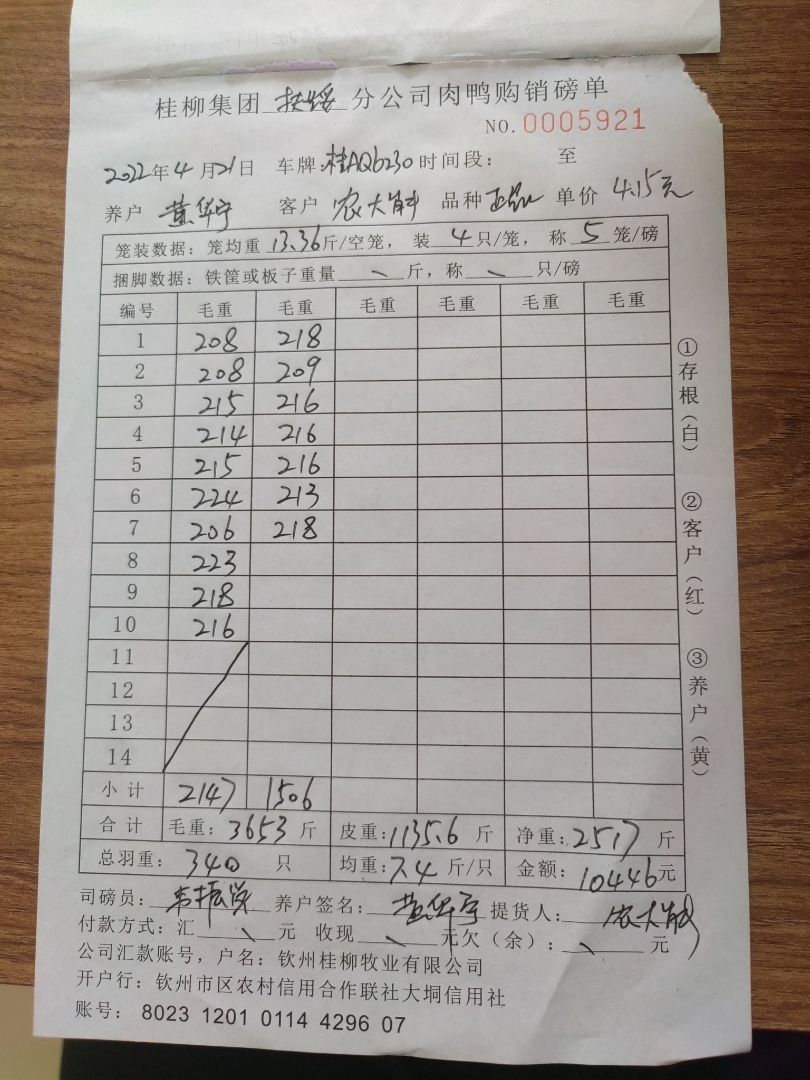 桂柳集团 扶绥 分公司肉鸭购销磅单
NO. 0005921
2022年4月21日 车牌:桂AQ6230 时间段: 至
养户 黄华宁 客户 农大 品种 正品 单价 4.15元
笼装数据: 笼均重 13.36斤/空笼, 装 4只/笼, 称 5 笼/磅
捆脚数据: 铁筐或板子重量 斤, 称 只/磅
编号 毛重 毛重 毛重 毛重 毛重 毛重
1 208 218
2 208 209
3 215 216
4 214 216
5 215 216
6 224 213
7 206 218
8 223
9 218
10 216
11
12
13
14
小计 2147 1506
合计 毛重: 3653 斤 皮重: 1135.6 斤 净重: 2517 斤
总羽重: 340 只 均重: 7.4 斤/只 金额: 10446元
司磅员: 韦振 养户签名: 黄华宁 提货人: 农大
付款方式: 汇 元 收现 元欠(余): 元
公司汇款账号, 户名: 钦州桂柳牧业有限公司
开户行: 钦州市区农村信用合作联社大垌信用社
账号: 8023 1201 0114 4296 07
①存根(白)
②客户(红)
③养户(黄)